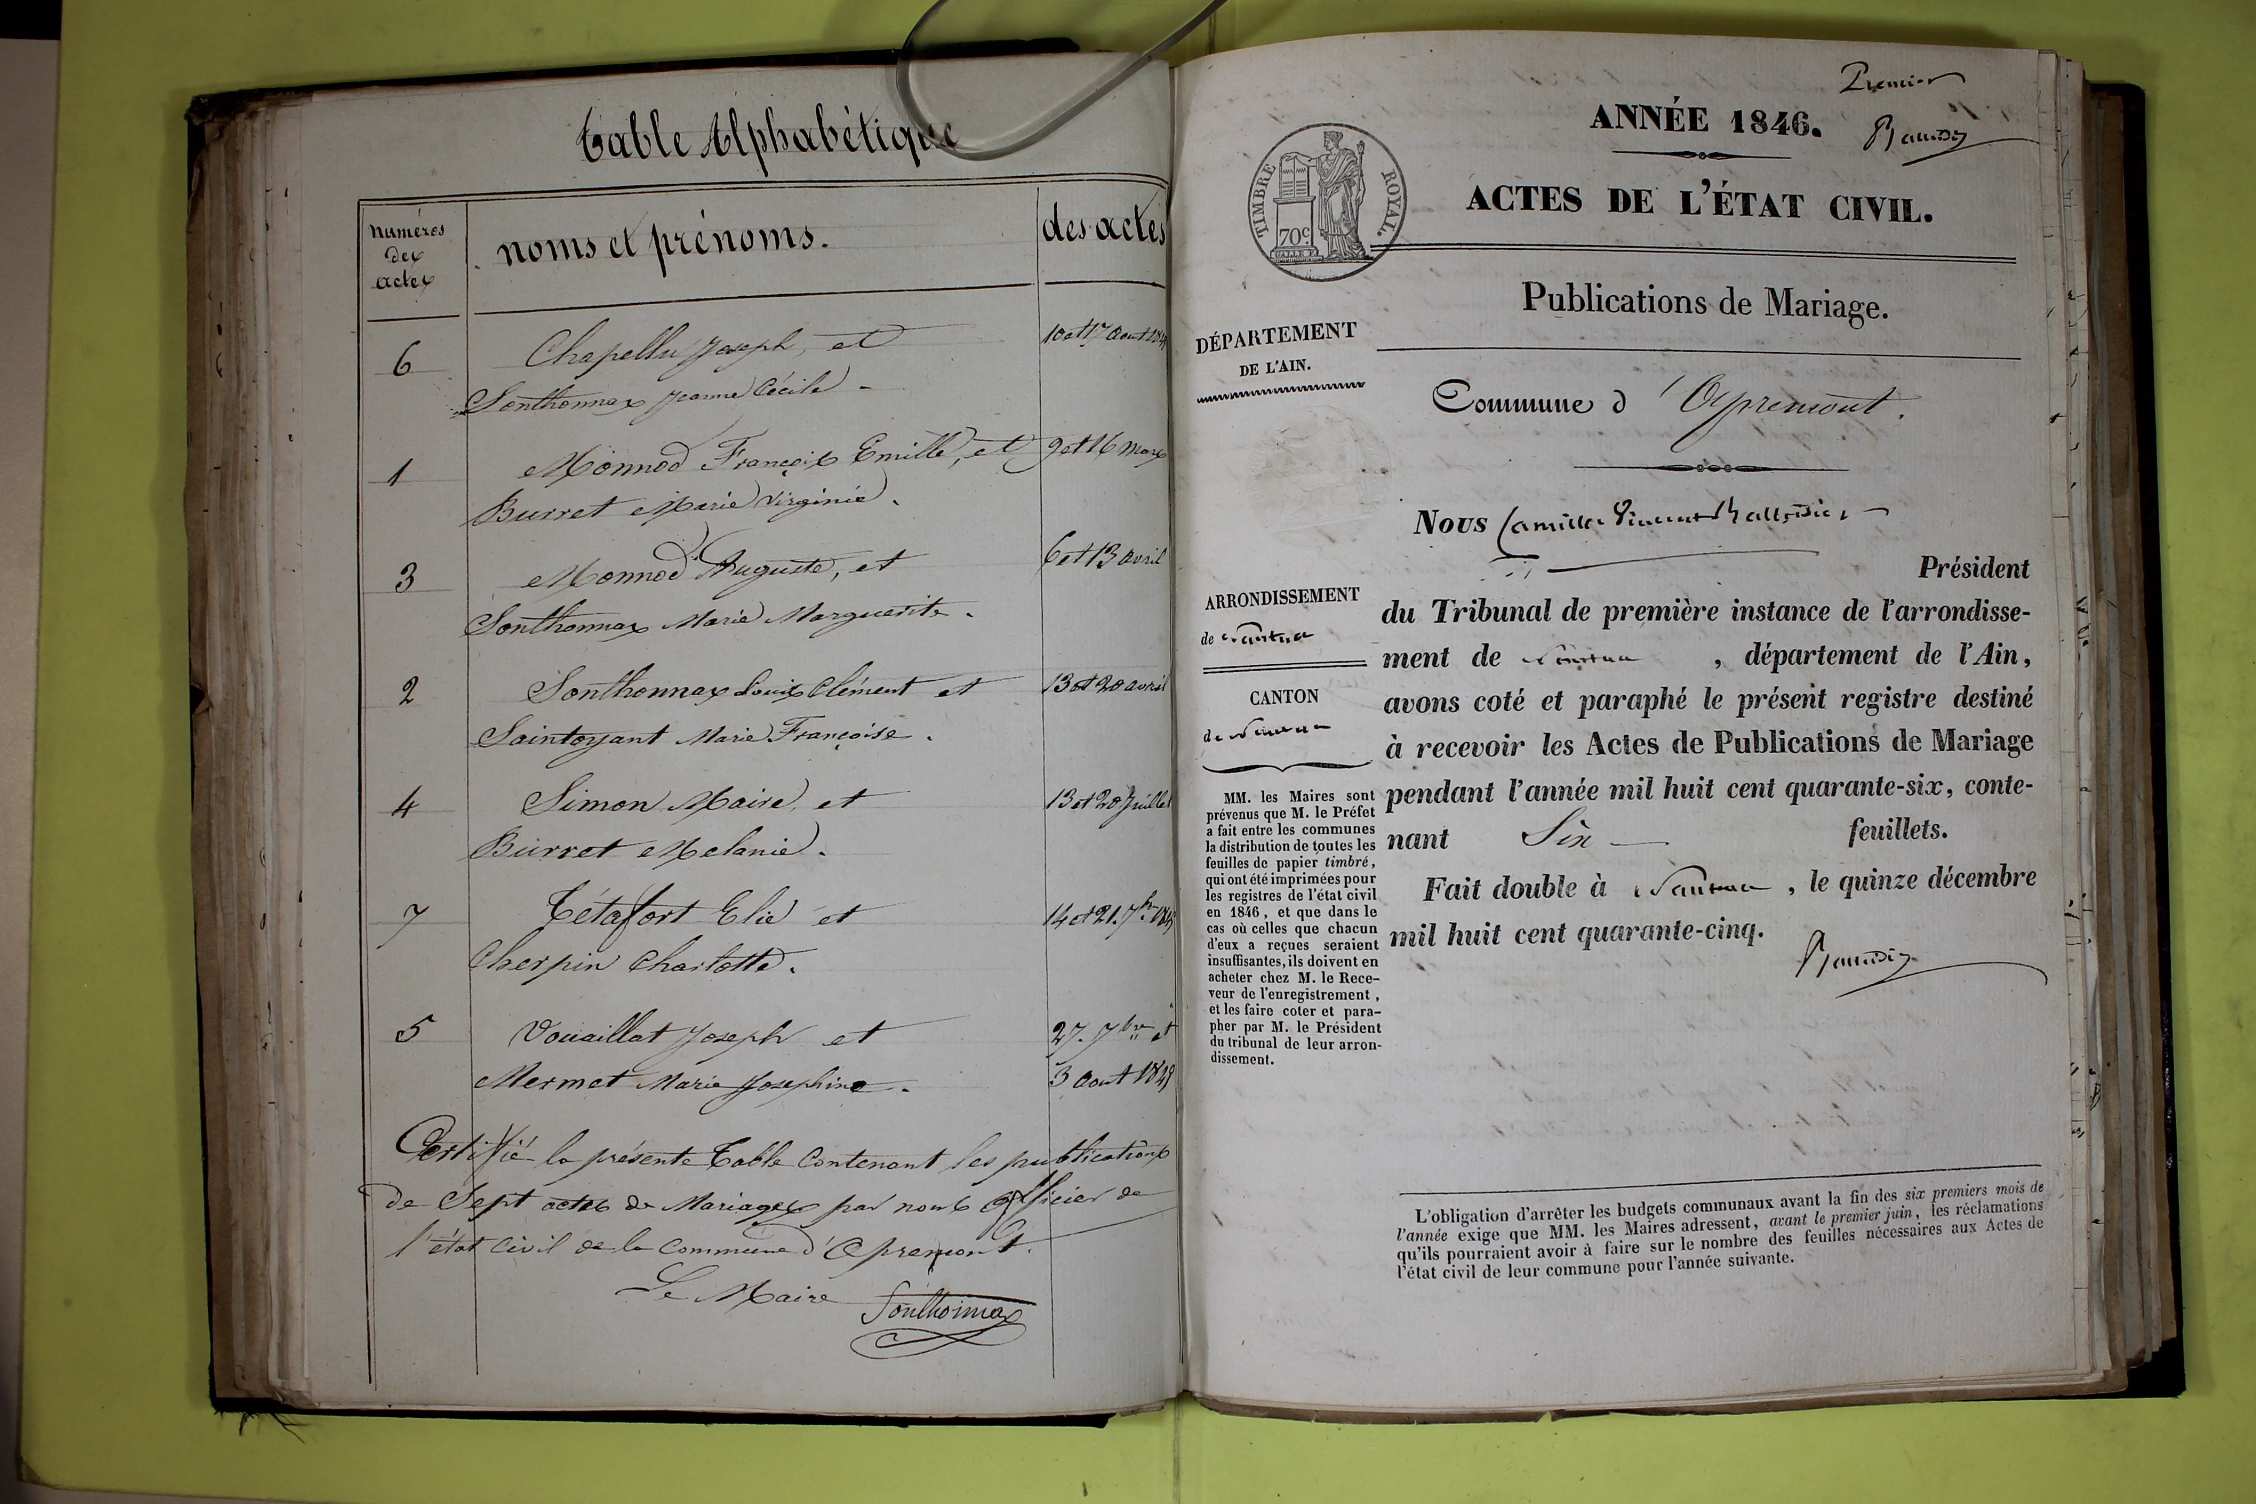 Table Alphabétique
numéros
des
actes
noms et prénoms.
des actes
6 Chapellu Joseph, et 10 et 17 Aout 184
Sonthonnax Jeanne Cécile
1 Monnod François Emille, et 9 et 16 Mars
Burret Marie Virginie.
3 Monnod Auguste, et 6 et 13 avril
Sonthonnax Marie Marguerite.
2 Sonthonnax Louis Clément et 13 et 20 avril
Saintoyant Marie Françoise.
4 Simon Maire, et 13 et 20 Juillet
Burret Melanie.
7 Tétafort Elie et 14 et 21. 7bre 184
Cherpin Charlotte.
5 Vouaillat Joseph et 27. 7bre et
Mermet Marie Josephine. 3 Aout 1845
Certifié la présente Table Contenant les publications
de Sept actes de Mariages par nous officier de
l'état Civil de la Commune d'Apremont.
Le Maire Sonthonnax
Premier
ANNÉE 1846.
TIMBRE ROYAL.
70c
ACTES DE L'ÉTAT CIVIL.
Publications de Mariage.
DÉPARTEMENT
DE L'AIN.
Commune d'Apremont.
Nous Camille Vincent
Président
ARRONDISSEMENT
de Nantua
CANTON
de Nantua
du Tribunal de première instance de l'arrondisse-
ment de Nantua, département de l'Ain,
avons coté et paraphé le présent registre destiné
à recevoir les Actes de Publications de Mariage
pendant l'année mil huit cent quarante-six, conte-
nant Six feuillets.
Fait double à Nantua, le quinze décembre
mil huit cent quarante-cinq.
MM. les Maires sont
prévenus que M. le Préfet
a fait entre les communes
la distribution de toutes les
feuilles de papier timbré,
qui ont été imprimées pour
les registres de l'état civil
en 1846, et que dans le
cas où celles que chacun
d'eux a reçues seraient
insuffisantes, ils doivent en
acheter chez M. le Rece-
veur de l'enregistrement,
et les faire coter et para-
pher par M. le Président
du tribunal de leur arron-
dissement.
L'obligation d'arrêter les budgets communaux avant la fin des six premiers mois de
l'année exige que MM. les Maires adressent, avant le premier juin, les réclamations
qu'ils pourraient avoir à faire sur le nombre des feuilles nécessaires aux Actes de
l'état civil de leur commune pour l'année suivante.